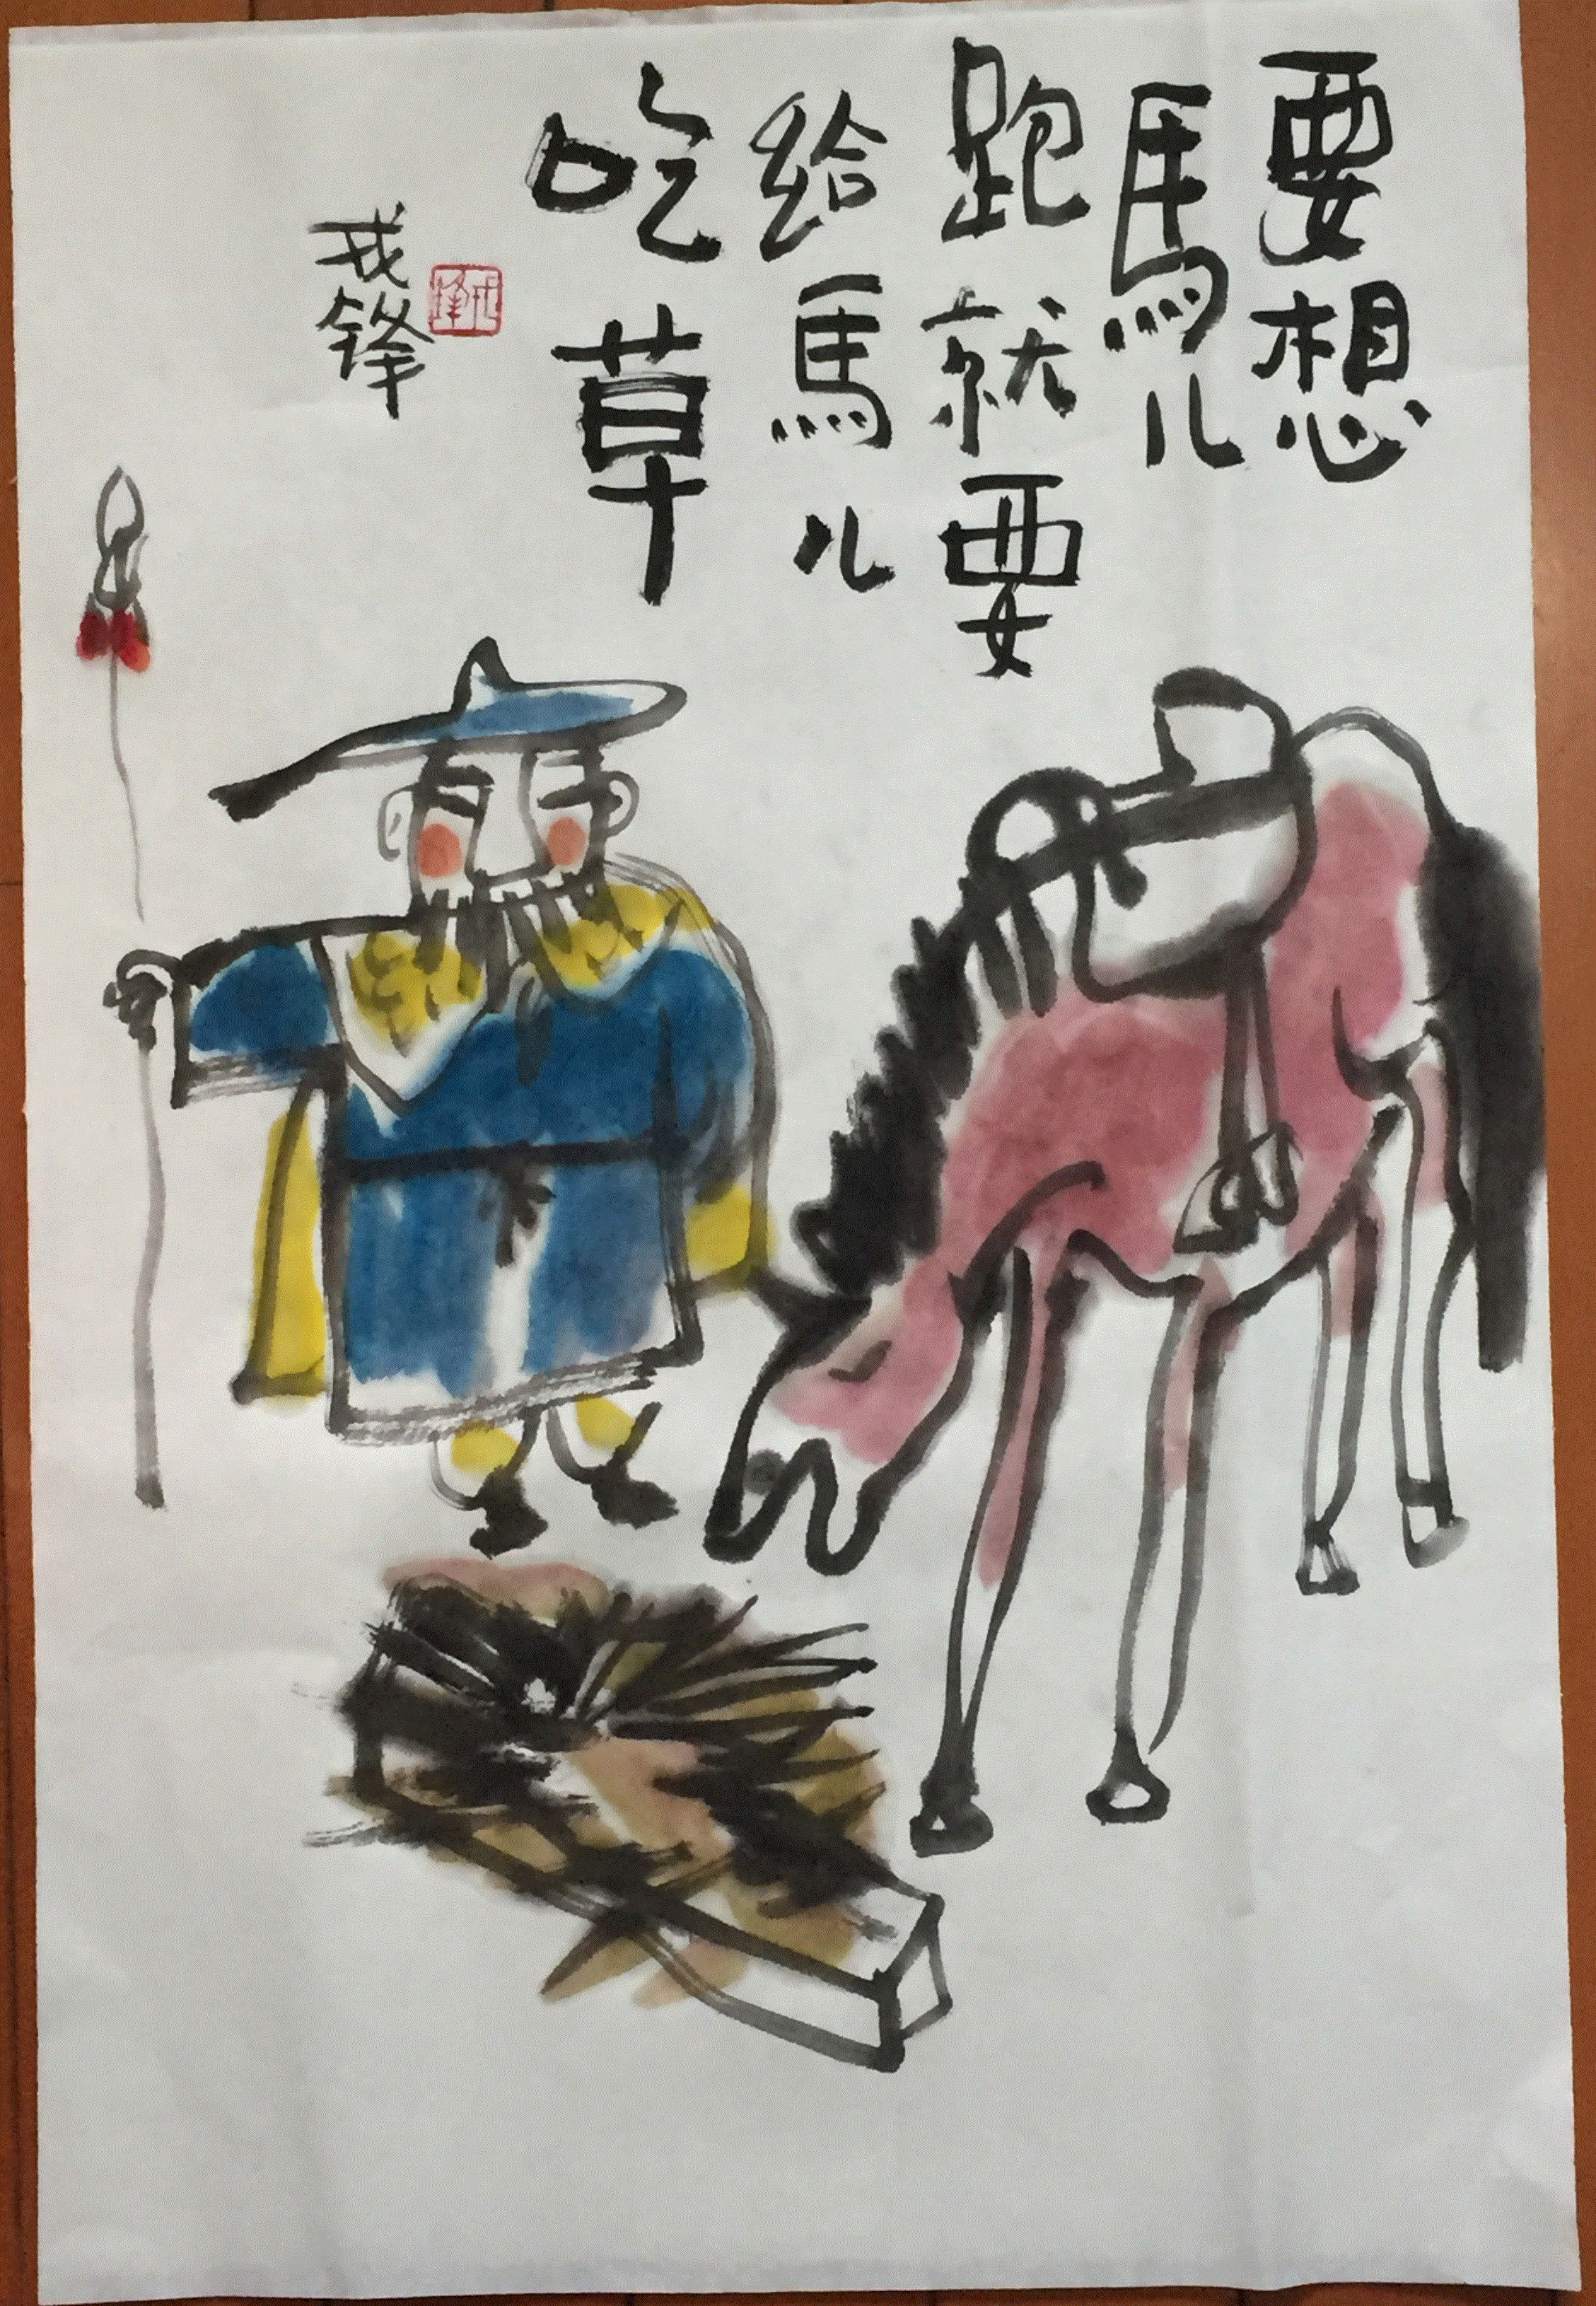 要想
馬儿
跑就要
給馬儿
吃草
戎锋